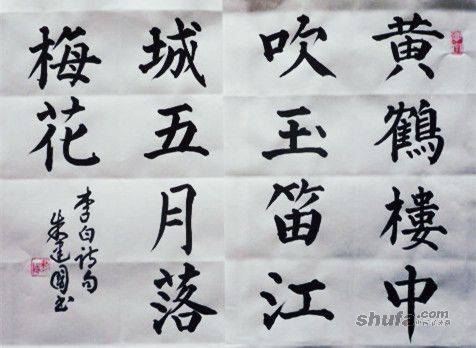 黄鹤楼中
吹玉笛江
城五月落
梅花
李白诗句
朱建国书
shufa.com